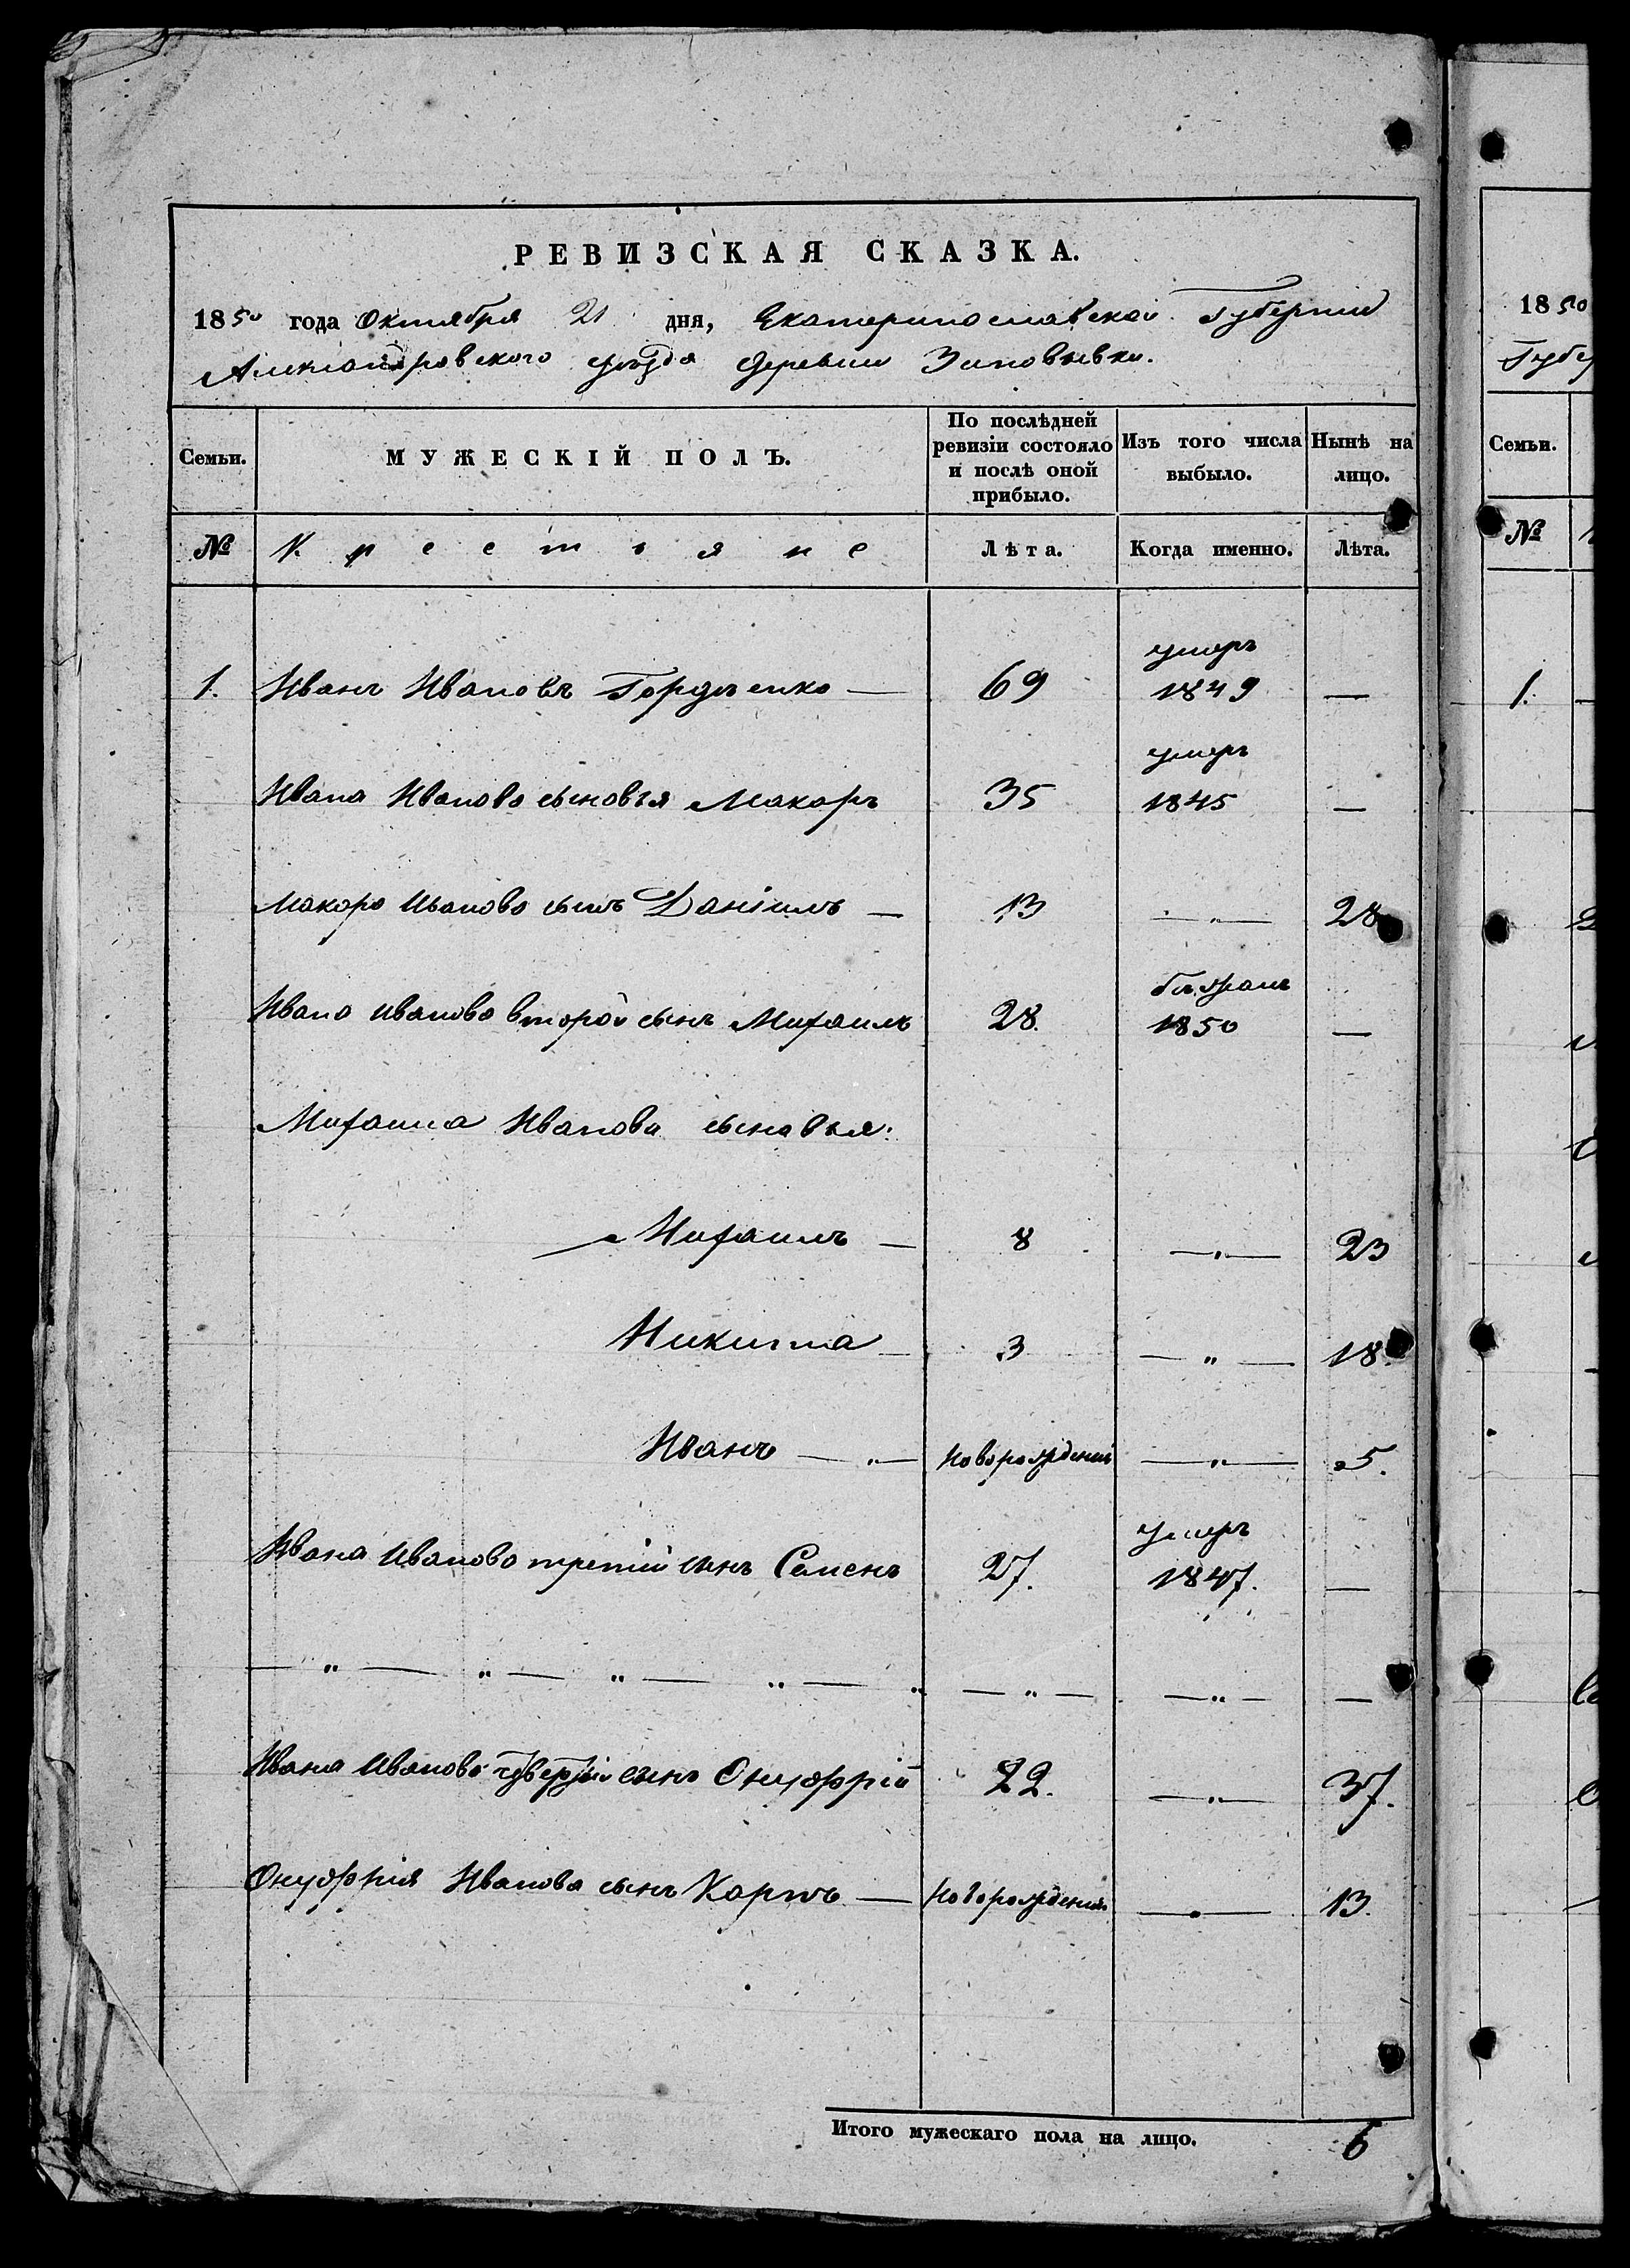 РЕВИЗСКАЯ СКАЗКА.
1850 года Октября 21 дня, Екатеринославской Губернии
Александровского уѣзда деревни Зиновьевки.
Семьи. МУЖЕСКІЙ ПОЛЪ. По послѣдней ревизіи состояло и послѣ оной прибыло. Изъ того числа выбыло. Нынѣ на лицо.
№ Крестьяне Лѣта. Когда именно. Лѣта.
умеръ
1. Иванъ Ивановъ Гордѣенко — 69 1849 —
умеръ
Ивана Иванова сыновья Макаръ 35 1845 —
Макара Иванова сынъ Даніилъ — 13 — „ — 28
1850
Ивана Иванова второй сынъ Михаилъ 28. —
Михаила Иванова сыновья:
Михаилъ — 8 — „ — 23
Никита — 3 — „ — 18
Иванъ — „ — новорожденный — „ — 5.
умеръ
Ивана Иванова третій сынъ Семенъ 27. 1847. —
— „ — „ — „ — „ — „ — „ — — „ — —
Ивана Иванова четвертый сынъ Онуфрій 22. — „ — 37.
Онуфрія Иванова сынъ Карпъ — новорожденный — „ — 13.
Итого мужескаго пола на лицо. 6
1850
Губер
Семьи.
№
1.